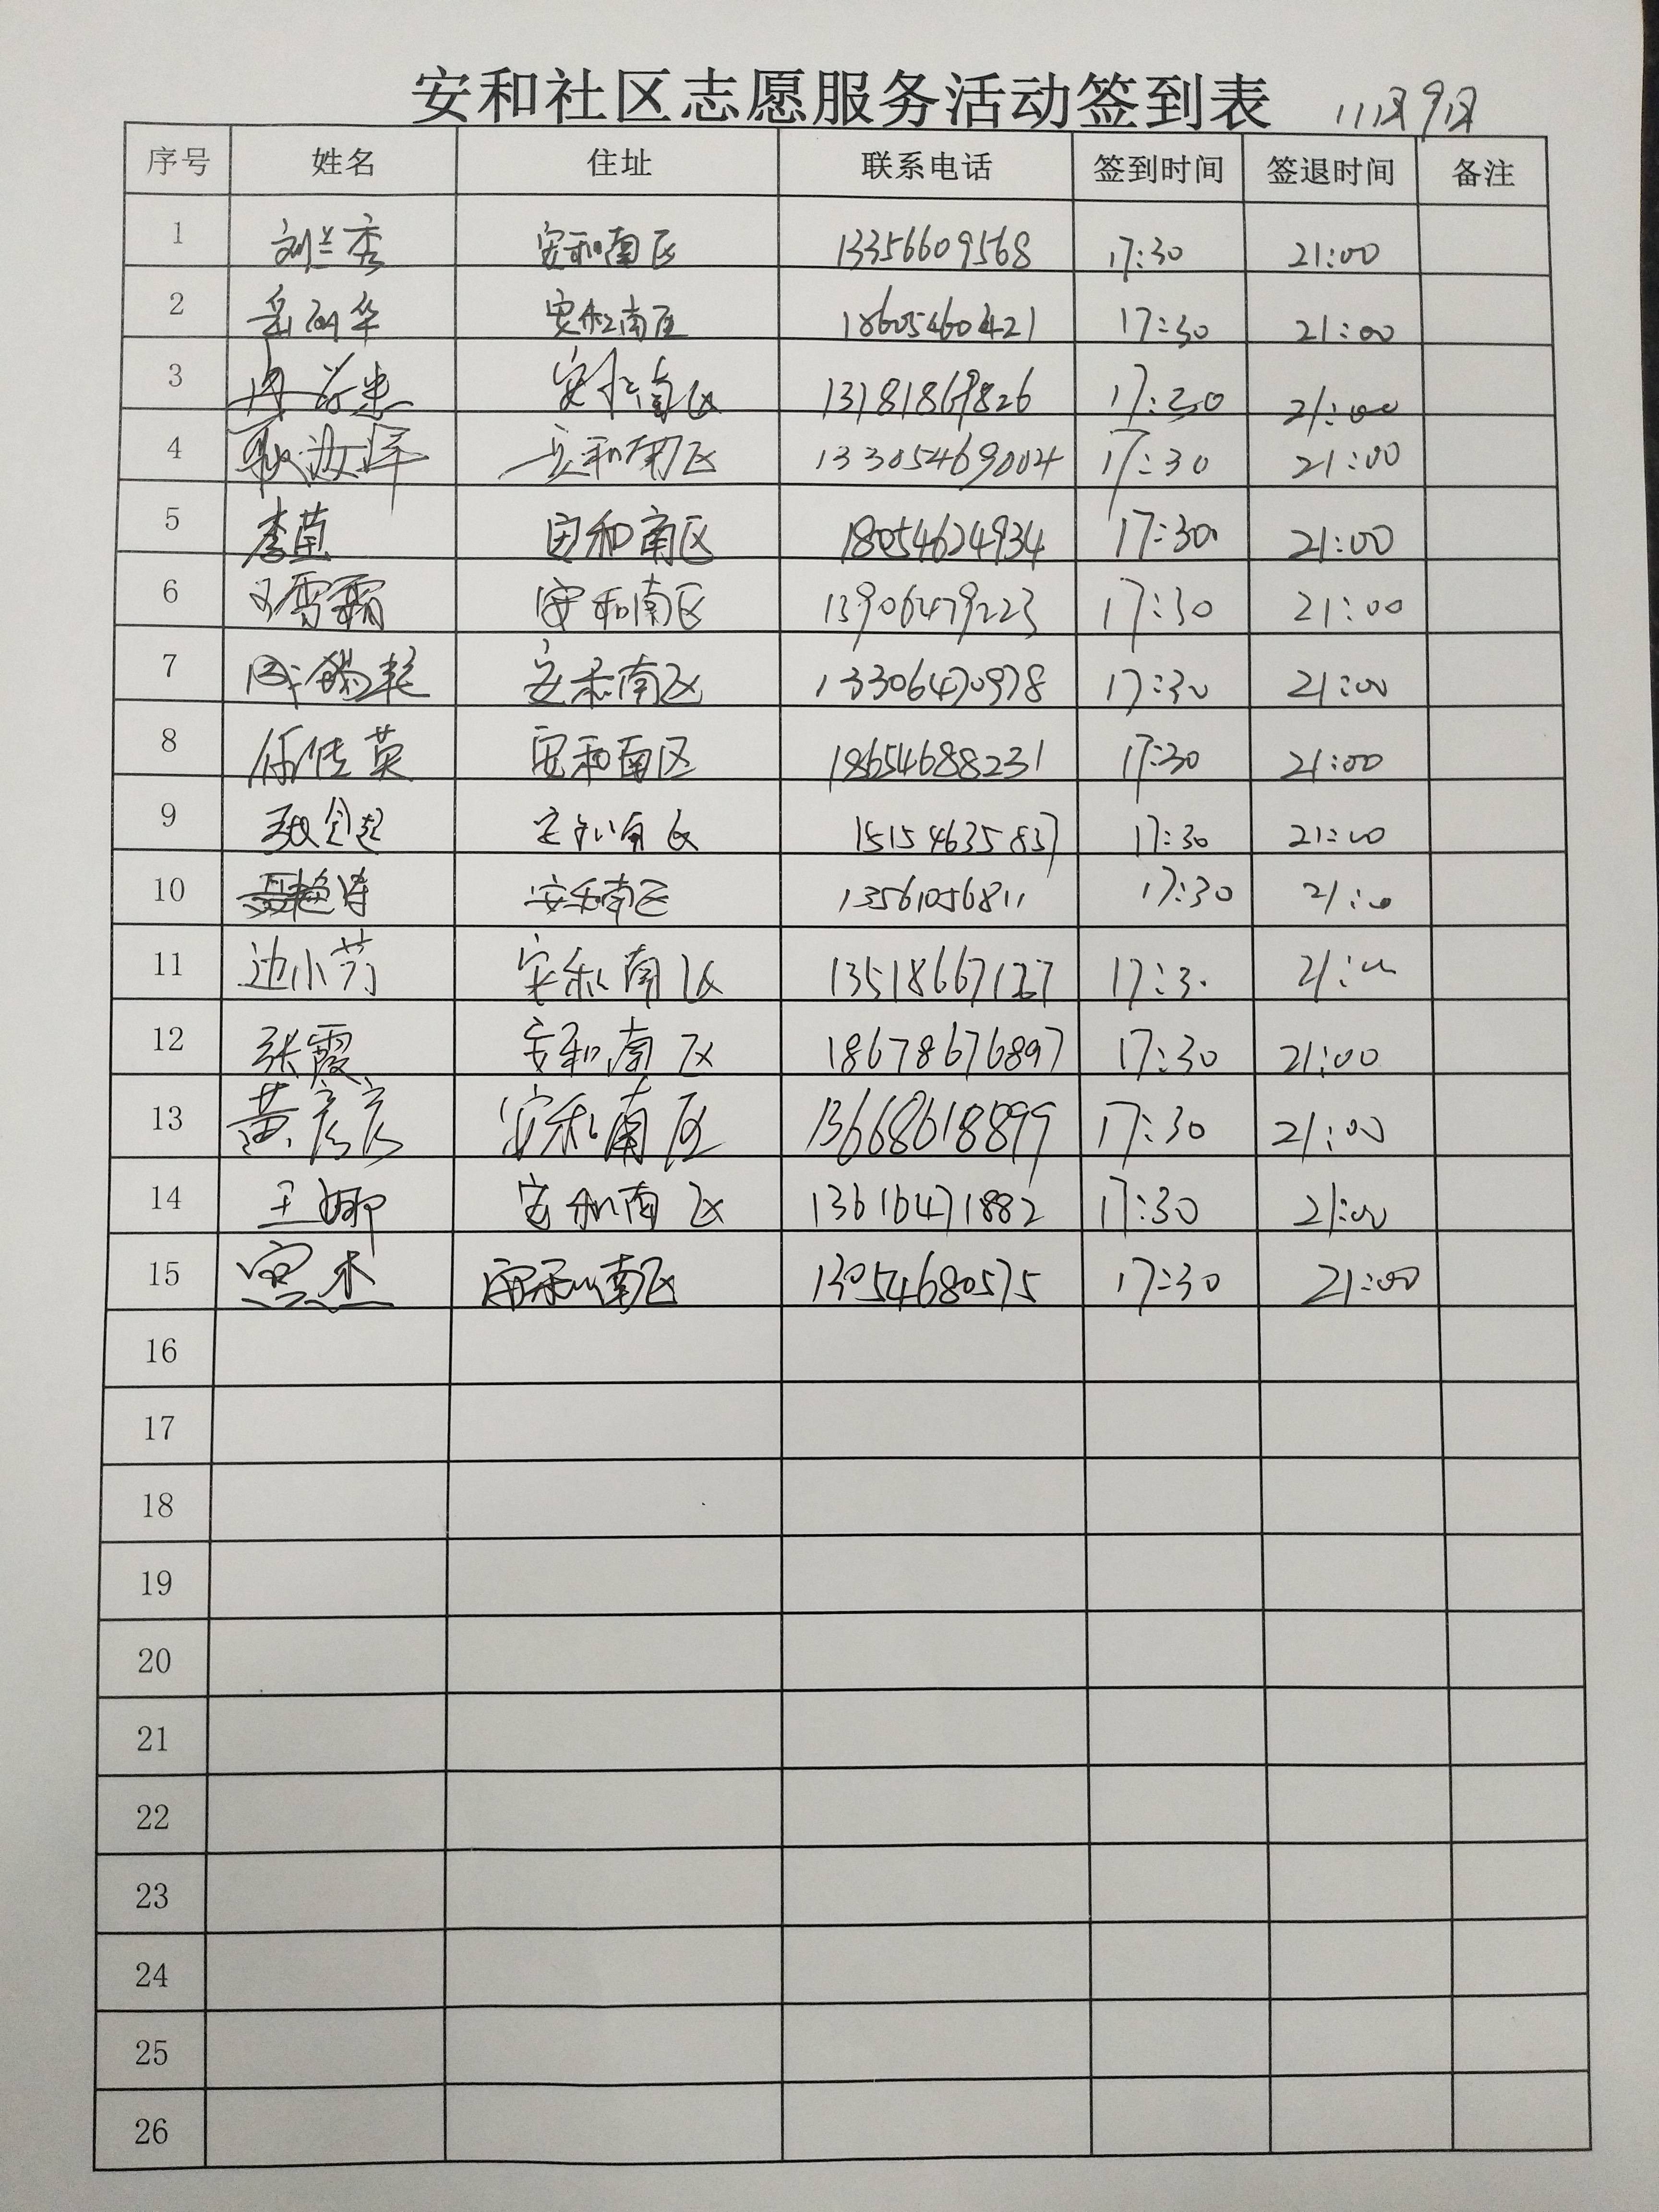 安和社区志愿服务活动签到表 11月9日
序号 姓名 住址 联系电话 签到时间 签退时间 备注
1 刘兰香 安和南区 13356609568 17:30 21:00
2 安和南区 18605460421 17:30 21:00
3 安和南区 13181869826 17:30 21:00
4 耿汝洋 安和南区 13305469004 17:30 21:00
5 李苗 安和南区 18054624934 17:30 21:00
6 安和南区 13906479223 17:30 21:00
7 安和南区 13306470978 17:30 21:00
8 任传英 安和南区 18654688231 17:30 21:00
9 安和南区 15154635837 17:30 21:00
10 安和南区 13561056811 17:30 21:00
11 边小芳 安和南区 13518667127 17:30 21:00
12 张霞 安和南区 18678676897 17:30 21:00
13 黄彦彦 安和南区 13668618899 17:30 21:00
14 王娜 安和南区 13616471882 17:30 21:00
15 安和南区 13054680575 17:30 21:00
16
17
18
19
20
21
22
23
24
25
26